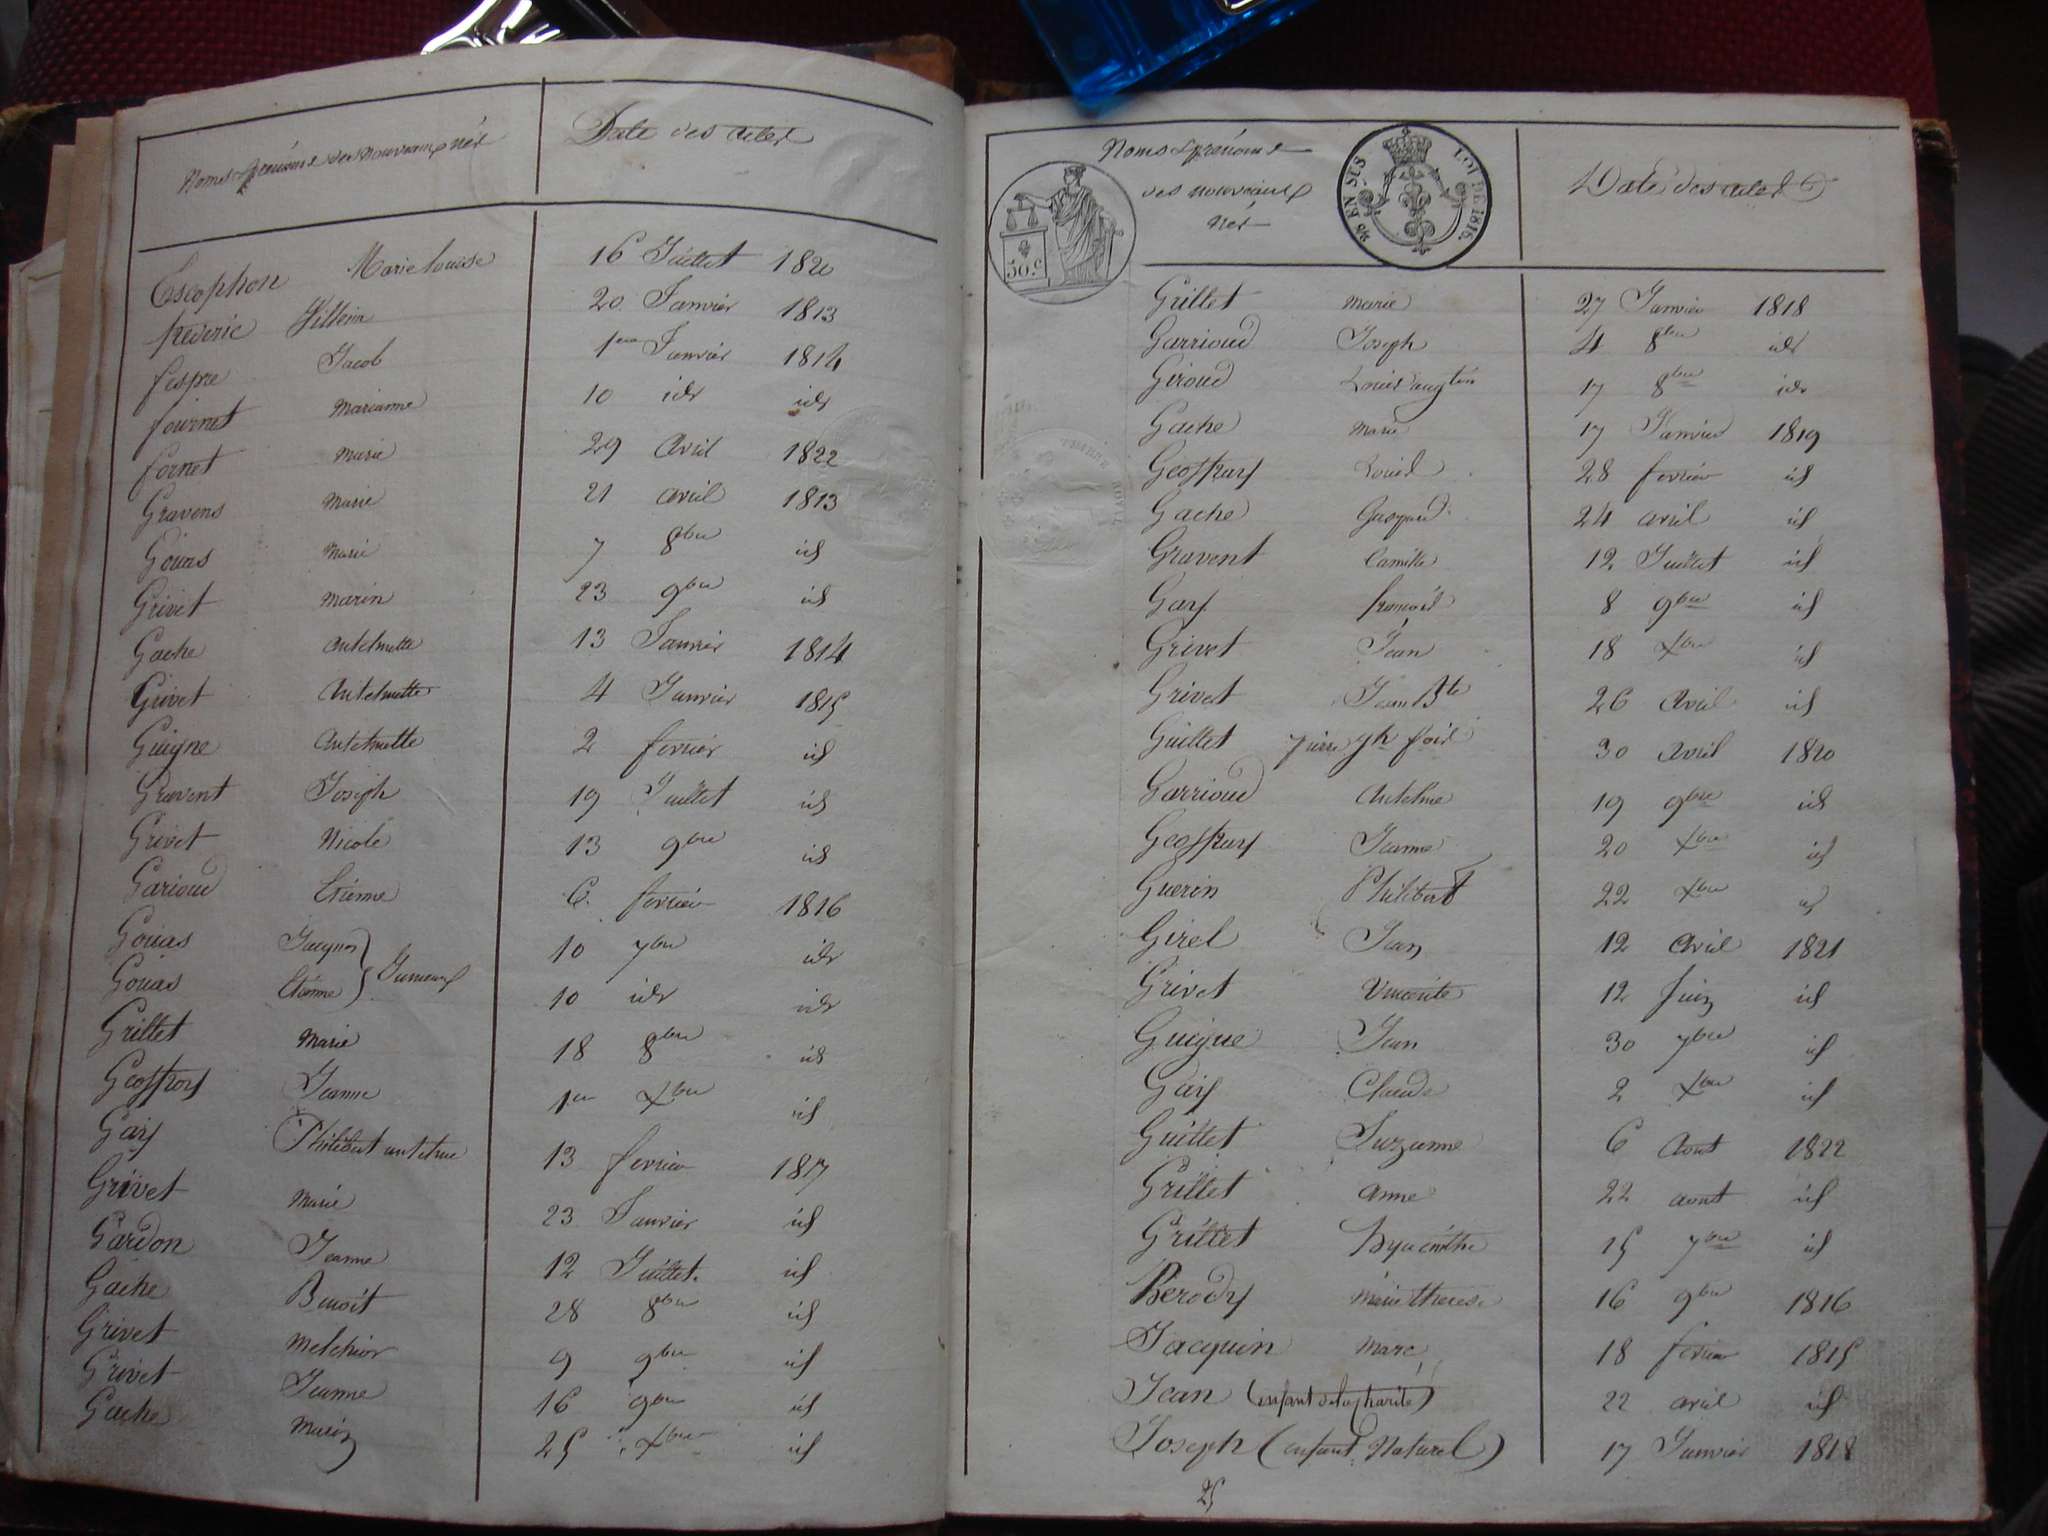 Noms & prénoms des nouveaux nés Date des actes
Escophon Marie Louise 16 Juillet 1820
20 Janvier 1813
fespre Jacob 1er Janvier 1814
fournet Marianne 10 idr idr
fornet Marie 29 avril 1822
Gravens Marie 21 avril 1813
Gouas Marie 7 8bre id
Grivet Marin 23 9bre id
Gache Antelmette 13 Janvier 1814
Grivet Antelmette 4 Janvier 1815
Guigne Antelmette 2 fevrier id
Gravent Joseph 19 Juillet id
Grivet Nicole 13 9bre id
Garioud Etienne 6 fevrier 1816
Gouas Jacques 10 7bre idr
Gouas Etienne } Jumeaux 10 idr idr
Grillet Marie 18 8bre id
Geoffray Jeanne 1er Xbre id
Gay Philibert antelme 13 fevrier 1817
Grivet Marie 23 Janvier id
Gardon Jeanne 12 Juillet id
Gache Benoit 28 8bre id
Grivet Melchior 9 9bre id
Grivet Jeanne 16 9bre id
Gache Marin 25 Xbre id
Noms & prénoms
des nouveaux
nés
Date des actes
50.c
EN SUS
LOI DE 1816.
TIMBRE ROYAL
Grillet Marie 27 Janvier 1818
Garrioud Joseph 4 8bre idr
Giroud Louis augtin 17 8bre idr
Gache Marie 17 Janvier 1819
Geoffray Louis 28 fevrier id
Gache Gaspard 24 avril id
Gravent Camille 12 Juillet id
Gay francois 8 9bre id
Grivet Jean 18 Xbre id
Grivet Jean Bte 26 avril id
Guillet pierre jh 30 avril 1820
Garrioud Antelme 19 9bre id
Geoffray Jeanne 20 Xbre id
Guerin Philibert 22 Xbre id
Girel Jean 12 avril 1821
Grivet Vincente 12 Juin id
Guigue Jean 30 7bre id
Gay Claude 2 Xbre id
Guillet Suzanne 6 Aout 1822
Grillet anne 22 aout id
Grillet hyacinthe 15 7bre id
Berody Marie therese 16 9bre 1816
Jacquin Marc 18 fevrier 1815
Jean (enfant de la charité) 22 avril id
Joseph (enfant Naturel) 17 Janvier 1818
25